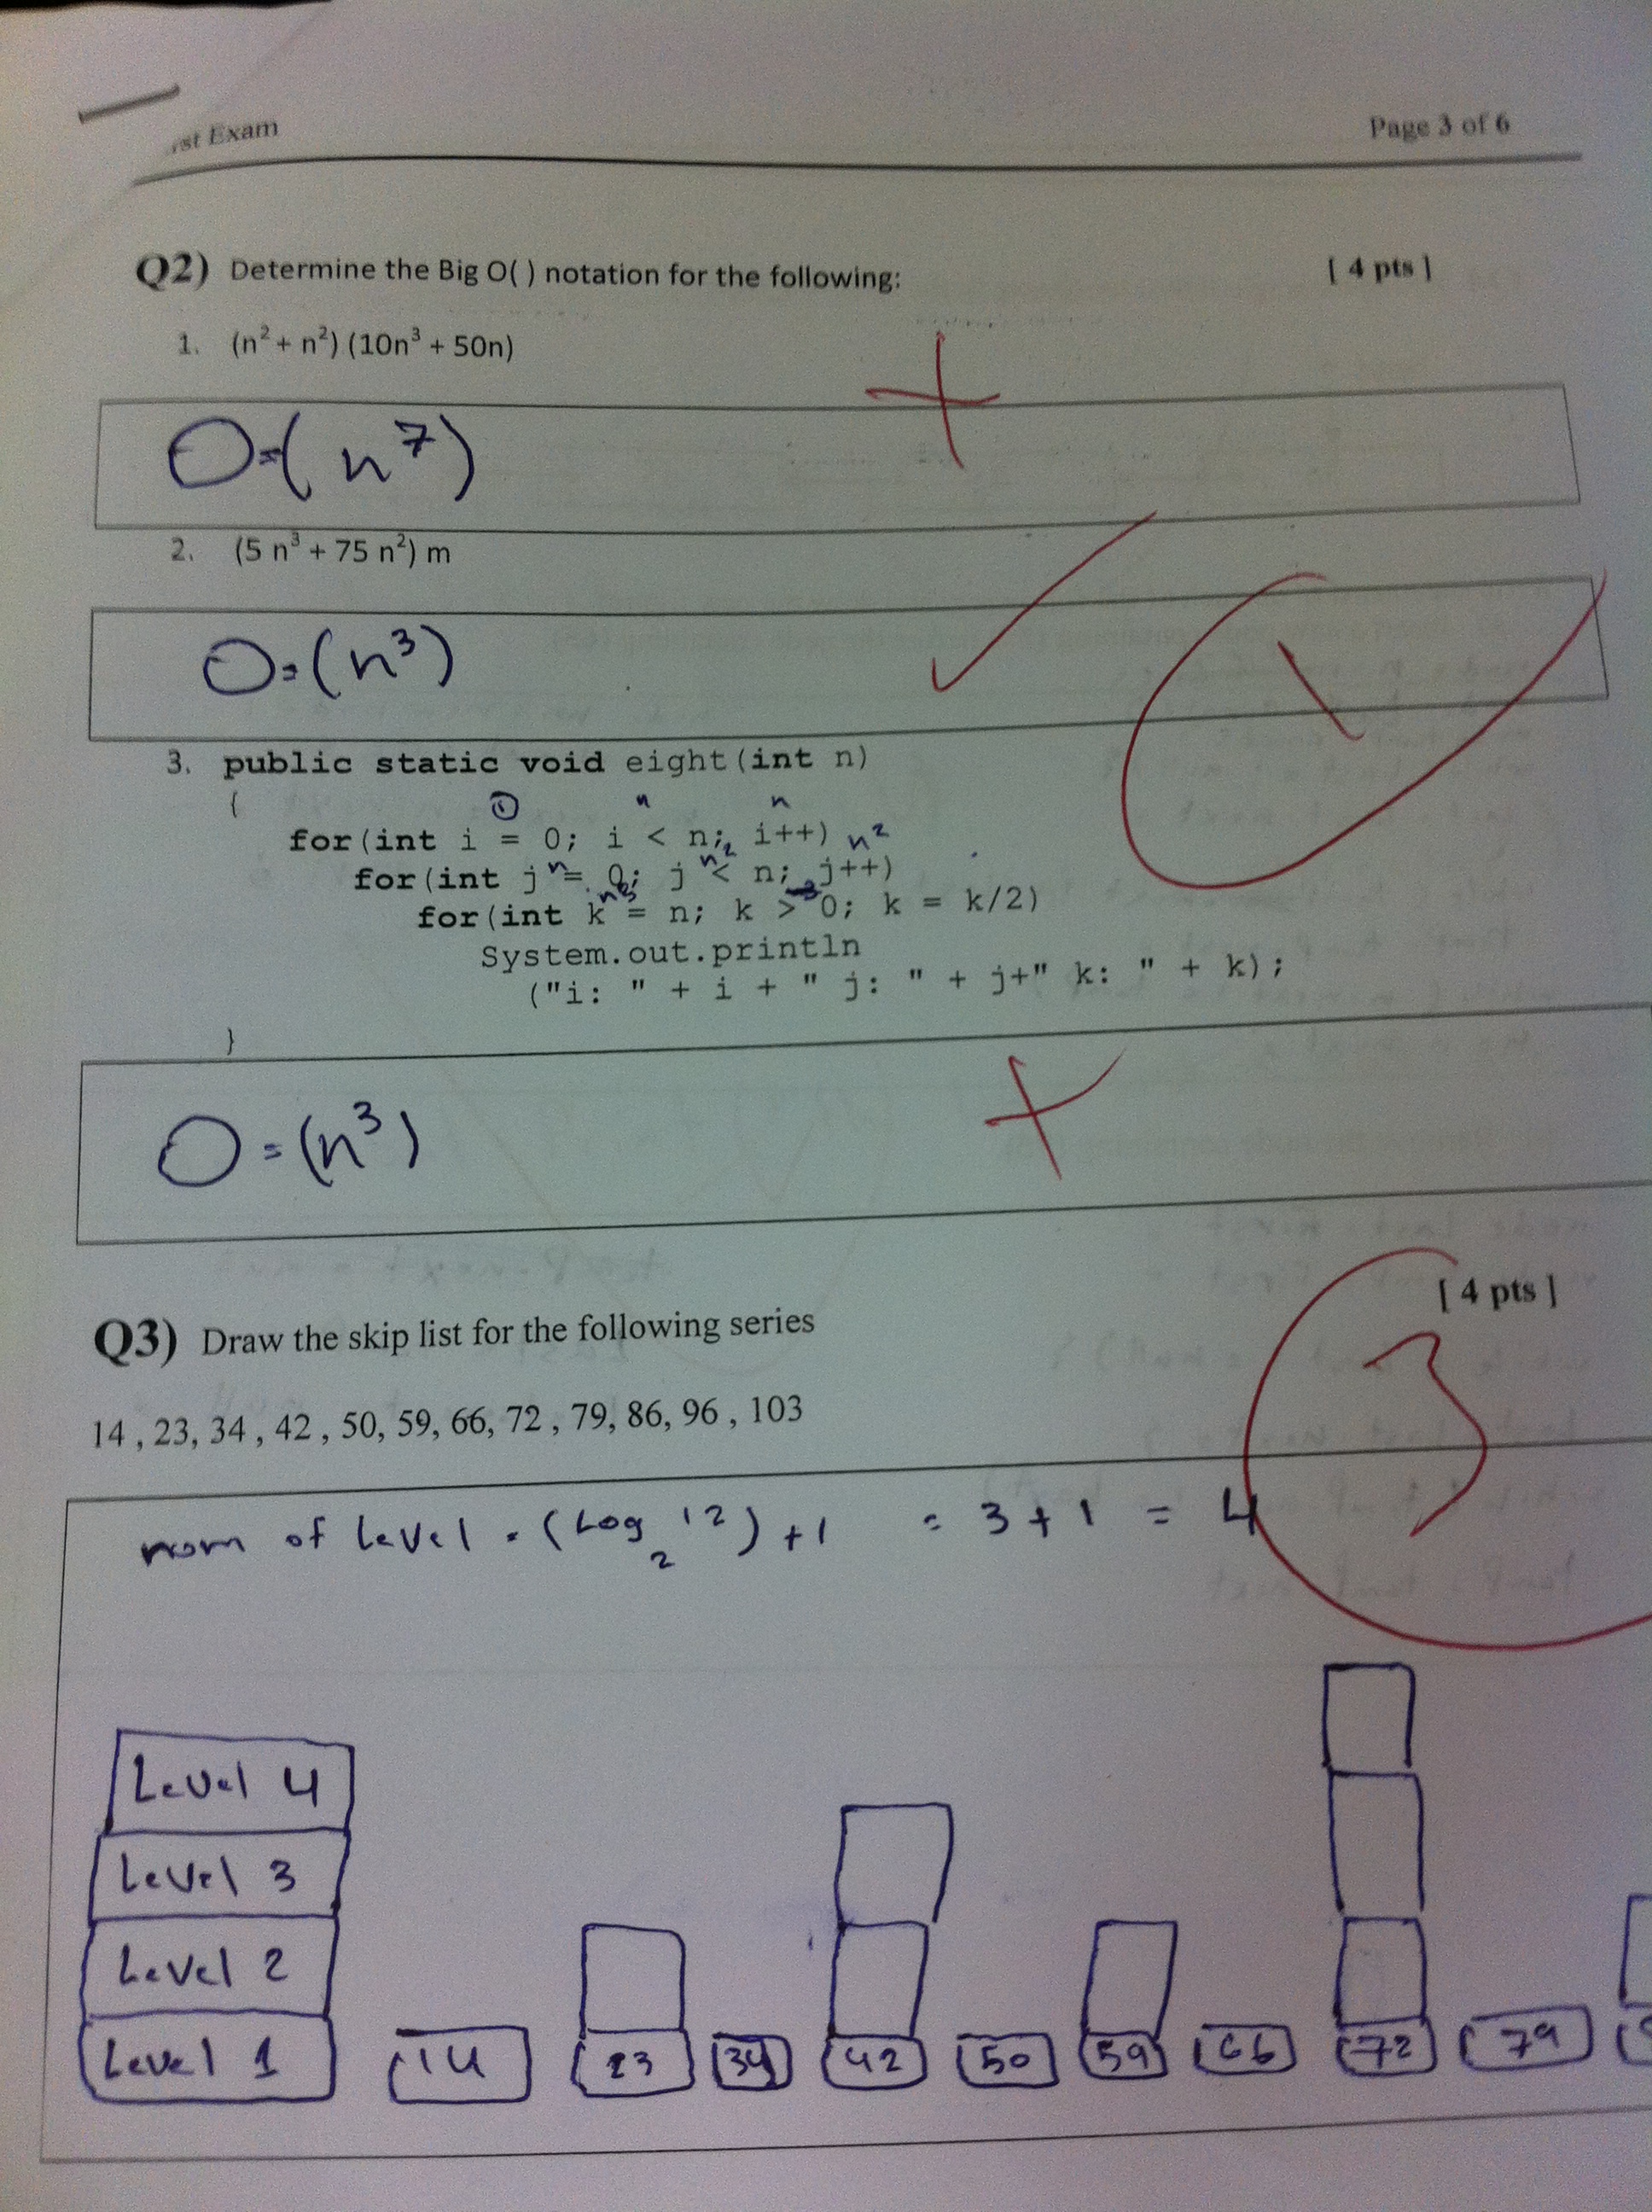 st Exam
Page 3 of 6
Q2) Determine the Big O( ) notation for the following:
[ 4 pts ]
1. (n² + n²) (10n³ + 50n)
O=( n⁷)
2. (5 n³ + 75 n²) m
O=(n³)
1
3. public static void eight(int n)
{
① n n
for(int i = 0; i < n; i++) n²
n n² n²
for(int j = 0; j < n; j++)
n³
for(int k = n; k > 0; k = k/2)
System.out.println
("i: " + i + " j: " + j+" k: " + k);
}
O=(n³)
Q3) Draw the skip list for the following series
[ 4 pts ]
3
14 , 23, 34 , 42 , 50, 59, 66, 72 , 79, 86, 96 , 103
nom of level = (Log₂ 12) + 1 = 3 + 1 = 4
Level 4
Level 3
Level 2
Level 1 14 23 34 42 50 59 66 72 79